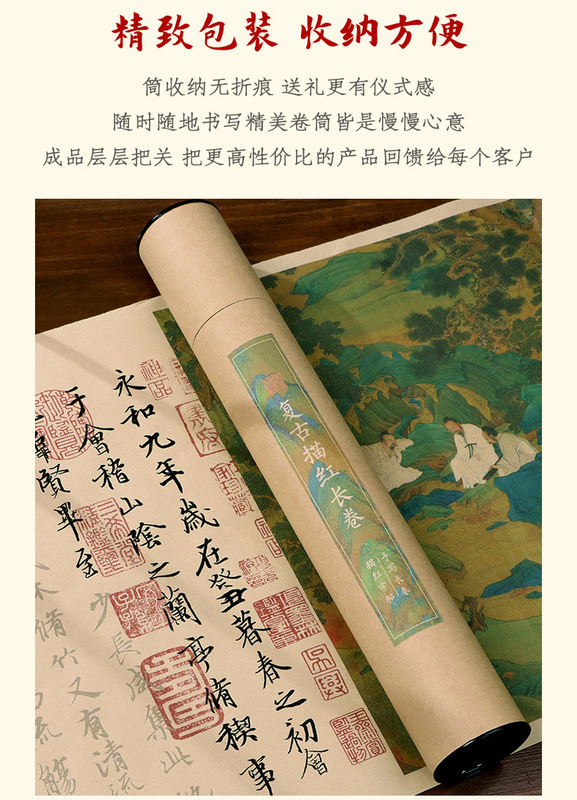 精致包装 收纳方便
筒收纳无折痕 送礼更有仪式感
随时随地书写精美卷筒皆是慢慢心意
成品层层把关 把更高性价比的产品回馈给每个客户
复古描红长卷
手写长卷
描红字帖
永和九年歲在癸丑暮春之初會
于會稽山陰之蘭亭脩禊事
羣賢畢至少長咸集此
脩竹又有清流
流觴